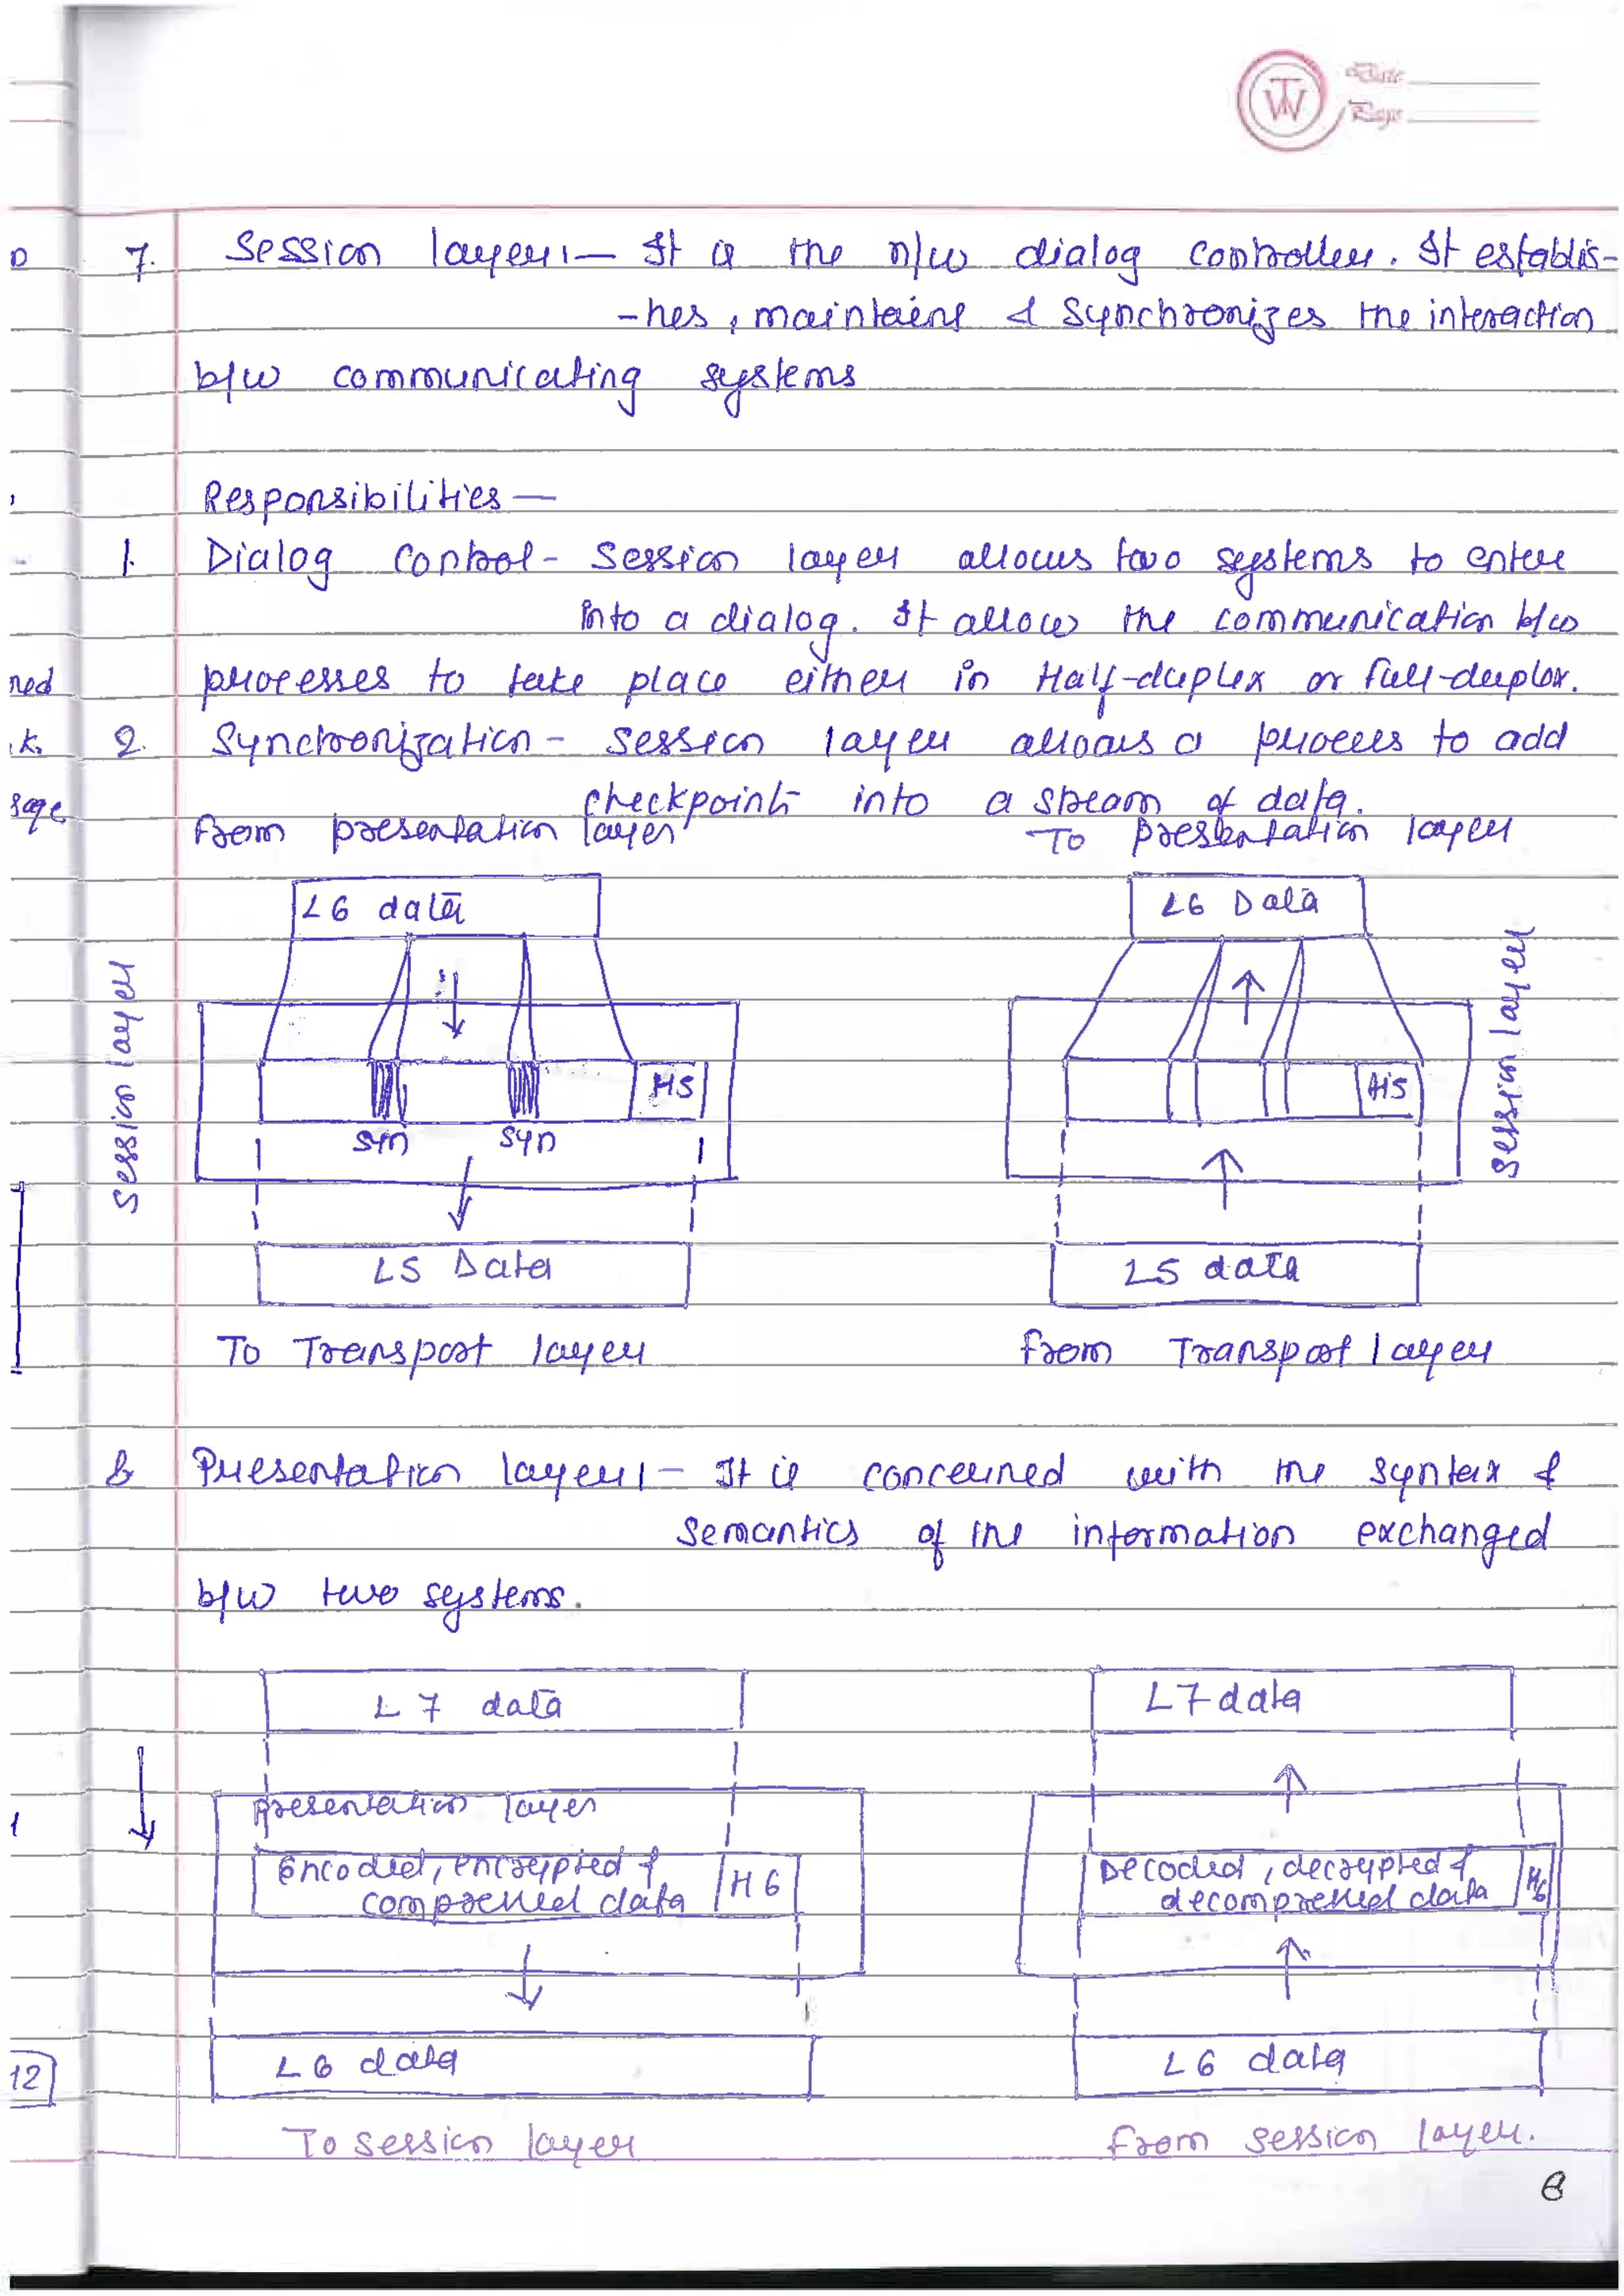 Date
Page
7. Session layer:— It is the n/w dialog controller. It establis-
-hes, maintains & synchronizes the interaction
b/w communicating systems
Responsibilities —
1. Dialog Control - Session layer allows two systems to enter
into a dialog. It allow the communication b/w
processes to take place either in Half-duplex or full-duplex.
2. Synchronization - Session layer allows a process to add
checkpoints into a stream of data.
From presentation layer To presentation layer
L6 data L6 Data
Session layer Session layer
H5 H5
Syn Syn
L5 Data L5 data
To Transport layer from Transport layer
8 Presentation layer:- It is concerned with the syntax &
semantics of the information exchanged
b/w two systems.
L7 data L7 data
presentation layer
Encoded, encrypted & H6 Decoded, decrypted & H6
compressed data decompressed data
L6 data L6 data
To session layer from session layer.
8
D
,
ned
k
sage
12